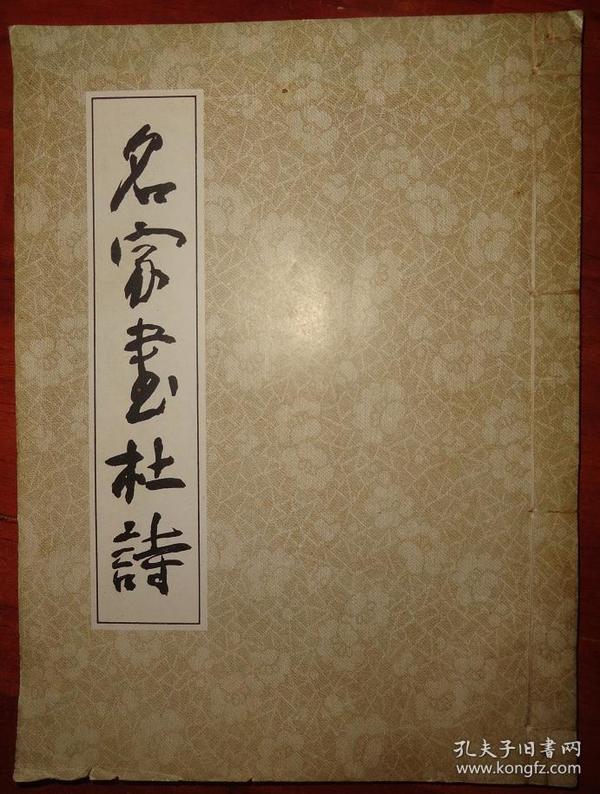 名家画杜詩
孔夫子旧書网
www.kongfz.com